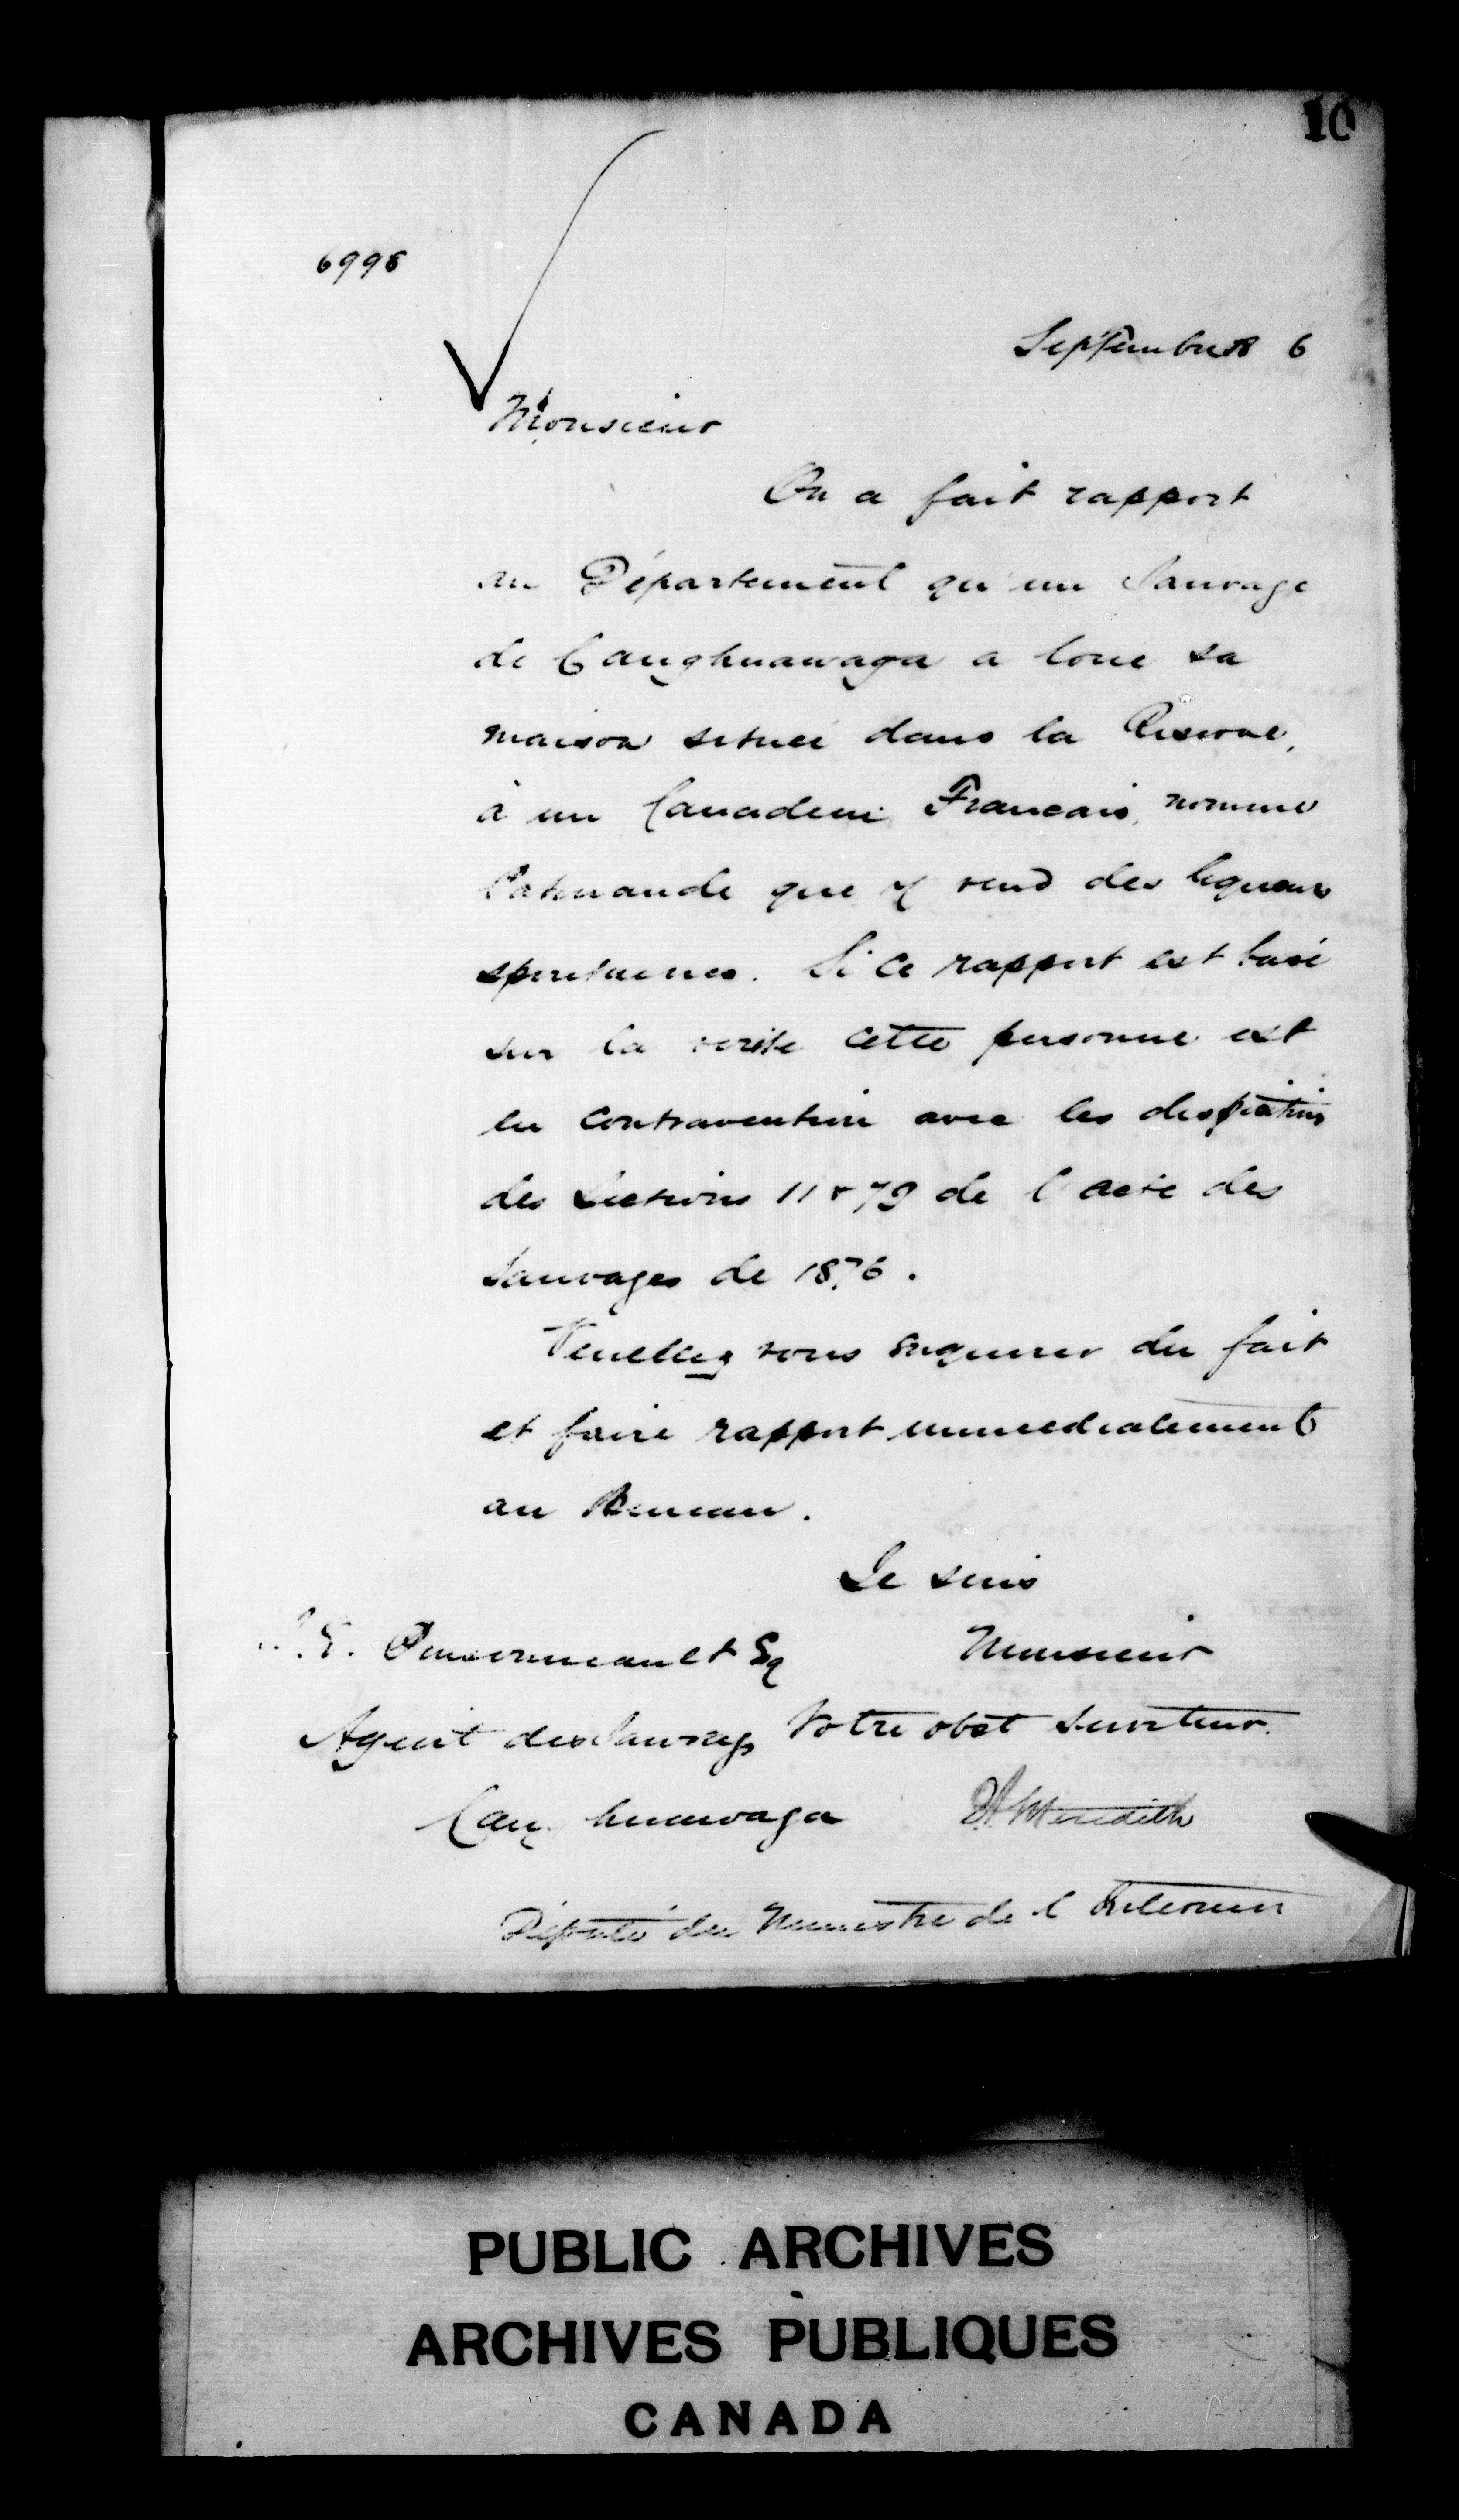 10
6998
Septembre 6
Monsieur
On a fait rapport
au Département qu'un Sauvage
de Caughnawaga a loué sa
maison située dans la Reserve,
à un Canadien Francais, nommé
que y vend des liqueurs
spiritueuses. Si ce rapport est basé
sur la verité cette personne est
en contravention avec les
des Sections 11 & 79 de l'acte des
Sauvages de 1876.
Veuillez vous enquerir du fait
et faire rapport immediatement
au Bureau.
Je suis
Monsieur
E. Pinsonneault Esq
Agent des Sauvages Votre obet Serviteur.
Caughnawaga
Meredith
Député du Ministre de l'Interieur
PUBLIC ARCHIVES
ARCHIVES PUBLIQUES
CANADA